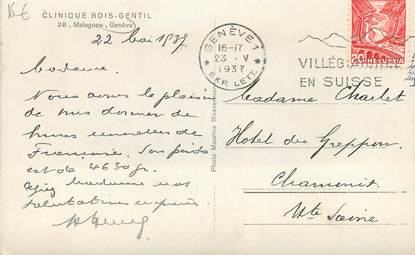 CLINIQUE BOIS-GENTIL
28, Malagnou, Genève
22 Mai 1937
Madame
Nous avons le plaisir
de vous donner de
bonnes nouvelles de
Son poids
est de 4630 gr.
Madame nos
salutations
GENÈVE 1
16-17
23 · V
1937
EXP. LETT.
VILLÉGIATURE
EN SUISSE
20 HELVETIA
Photo Maurice
Madame Charlet
Hotel du Greppon
Chamonix
Hte Savoie